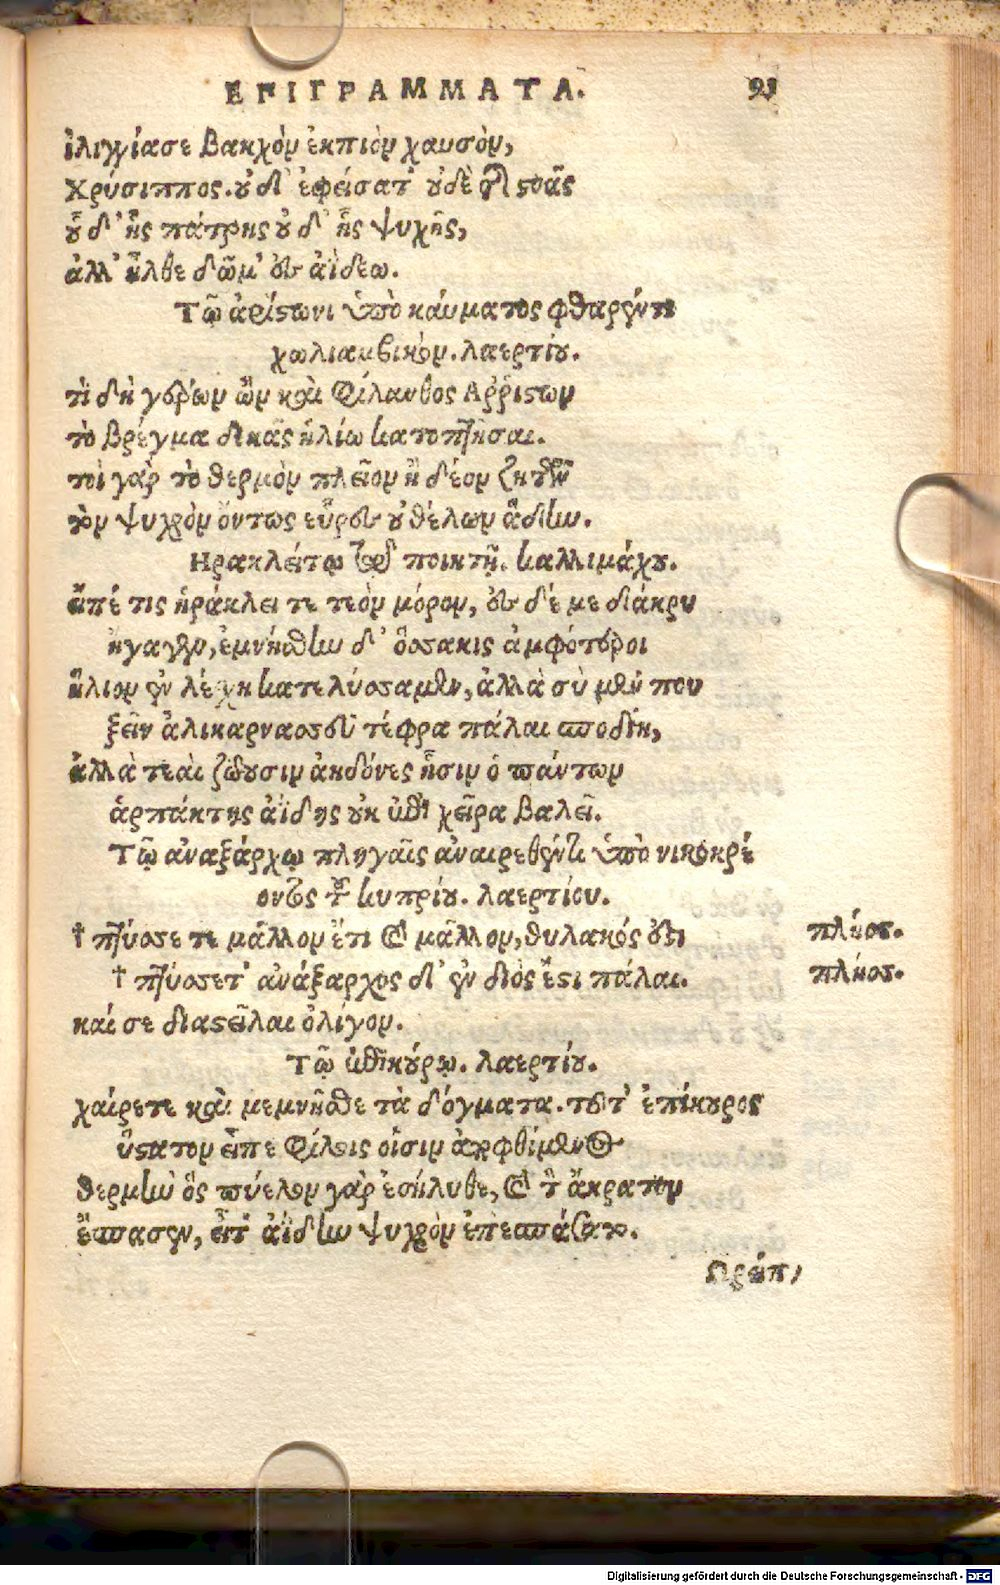 ΕΠΙΓΡΑΜΜΑΤΑ. 91
ἰλιγγίασε βακχὸν ἐκπιὸν χανσὸν,
Χρύσιππος. οὐδ' ἐφείσατ' οὐδὲ τῆς στοᾶς
οὐδ' ἧς πάτρης οὐδ' ἧς ψυχῆς,
ἀλλ' ἦλθε δῶμ' ἐς ἀίδεω.
Τῷ ἀρίστωνι ὑπὸ καύματος φθαρέντι
χωλιαμβικόν. λαερτίου.
τί δὴ γέρων ὢν καὶ φίλανθος Αρρίστων
τὸ βρέγμα δῶκας ἡλίῳ κατοπτῆσαι.
τοὶ γὰρ τὸ θερμὸν πλεῖον ἢ δέον ζητῶν
τὸν ψυχρὸν ὄντως εὗρες οὐ θέλων ἄδην.
Ηρακλείτῳ τῷ ποιητῇ. καλλιμάχου.
εἶπέ τις ἡράκλειτε τεὸν μόρον, ἐς δέ με δάκρυ
ἤγαγεν, ἐμνήσθην δ' ὁσσάκις ἀμφότεροι
ἥλιον ἐν λέσχῃ κατελύσαμεν, ἀλλὰ σὺ μέν που
ξεῖν' ἁλικαρνασσεῦ τέφρα πάλαι σποδίη,
ἀλλὰ τεαὶ ζώουσιν ἀηδόνες ᾗσιν ὁ πάντων
ἁρπάκτης ἀίδης οὐκ ἐπὶ χεῖρα βαλεῖ.
Τῷ ἀναξάρχῳ πληγαῖς ἀναιρεθέντι ὑπὸ νικοκρέ
οντος τοῦ κυπρίου. λαερτίου.
† πτίσσετε μᾶλλον ἔτι καὶ μᾶλλον, θυλακός ἐστι πλήσσ.
† πτίσσετ' ἀνάξαρχος δ' ἐν διὸς ἔστι πάλαι. πλήσσ.
καί σε διαστεῖλαι ὀλίγον.
Τῷ ἐπικούρῳ. λαερτίου.
χαίρετε καὶ μεμνῆσθε τὰ δόγματα. τοῦτ' ἐπίκουρος
ὕστατον εἶπε φίλοις οἷσιν ἀποφθίμενος
θερμὴν ὃς πύελον γὰρ ἐσήλυθε, καὶ τὸν ἄκρατον
ἔσπασεν, εἶτ' ἀίδην ψυχρὸν ἐπεσπάσατο.
Digitalisierung gefördert durch die Deutsche Forschungsgemeinschaft - DFG